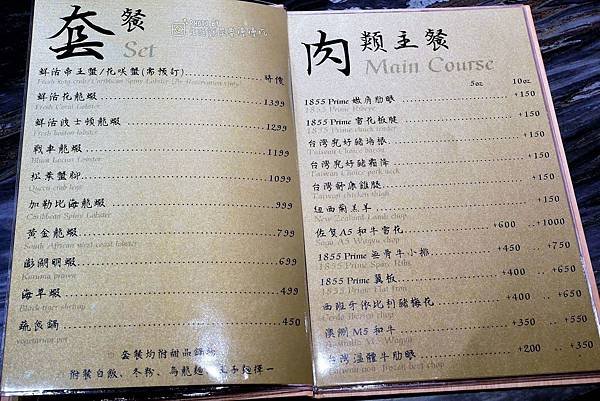 套餐
Set
鮮活帝王蟹/花咲蟹(需預訂) 時價
鮮活花龍蝦 1399
Fresh Coral Lobster
鮮活波士頓龍蝦 1299
Fresh boston lobster
戰車龍蝦 1199
松葉蟹腳 1099
加勒比海龍蝦 999
Caribbean Spiny Lobster
黃金龍蝦 799
South African west coast lobster
澎湖明蝦 699
Kuruma prawn
海草蝦 499
Black tiger shrimp
蔬食鍋 450
vegetarian pot
套餐均附甜品飲
附餐白飯、冬粉、烏龍麵、王子麵擇一
肉類主餐
Main Course
5oz 10oz
1855 Prime 嫩肩肋眼 +150
1855 Prime Ribeye
1855 Prime 雪花板腱 +150
1855 Prime chuck tender
台灣究好豬培根 +150
Taiwan Choice bacon
台灣究好豬霜降 +150
Taiwan Choice pork neck
台灣舒康雞腿 +150
Taiwan chicken thigh
紐西蘭羔羊 +150
New Zealand Lamb chop
佐賀A5和牛雪花 +600 +1000
Saga A5 Wagyu chop
1855 Prime 無骨牛小排 +450 +750
1855 Prime Spare Ribs
1855 Prime 翼板 +400 +650
1855 Prime Flat Iron
西班牙依比利豬梅花 +400 +650
澳洲 M5 和牛 +350 +550
Australia M5 Wagyu
台灣溫體牛肋眼 +200 +350
Taiwan non frozen beef chop